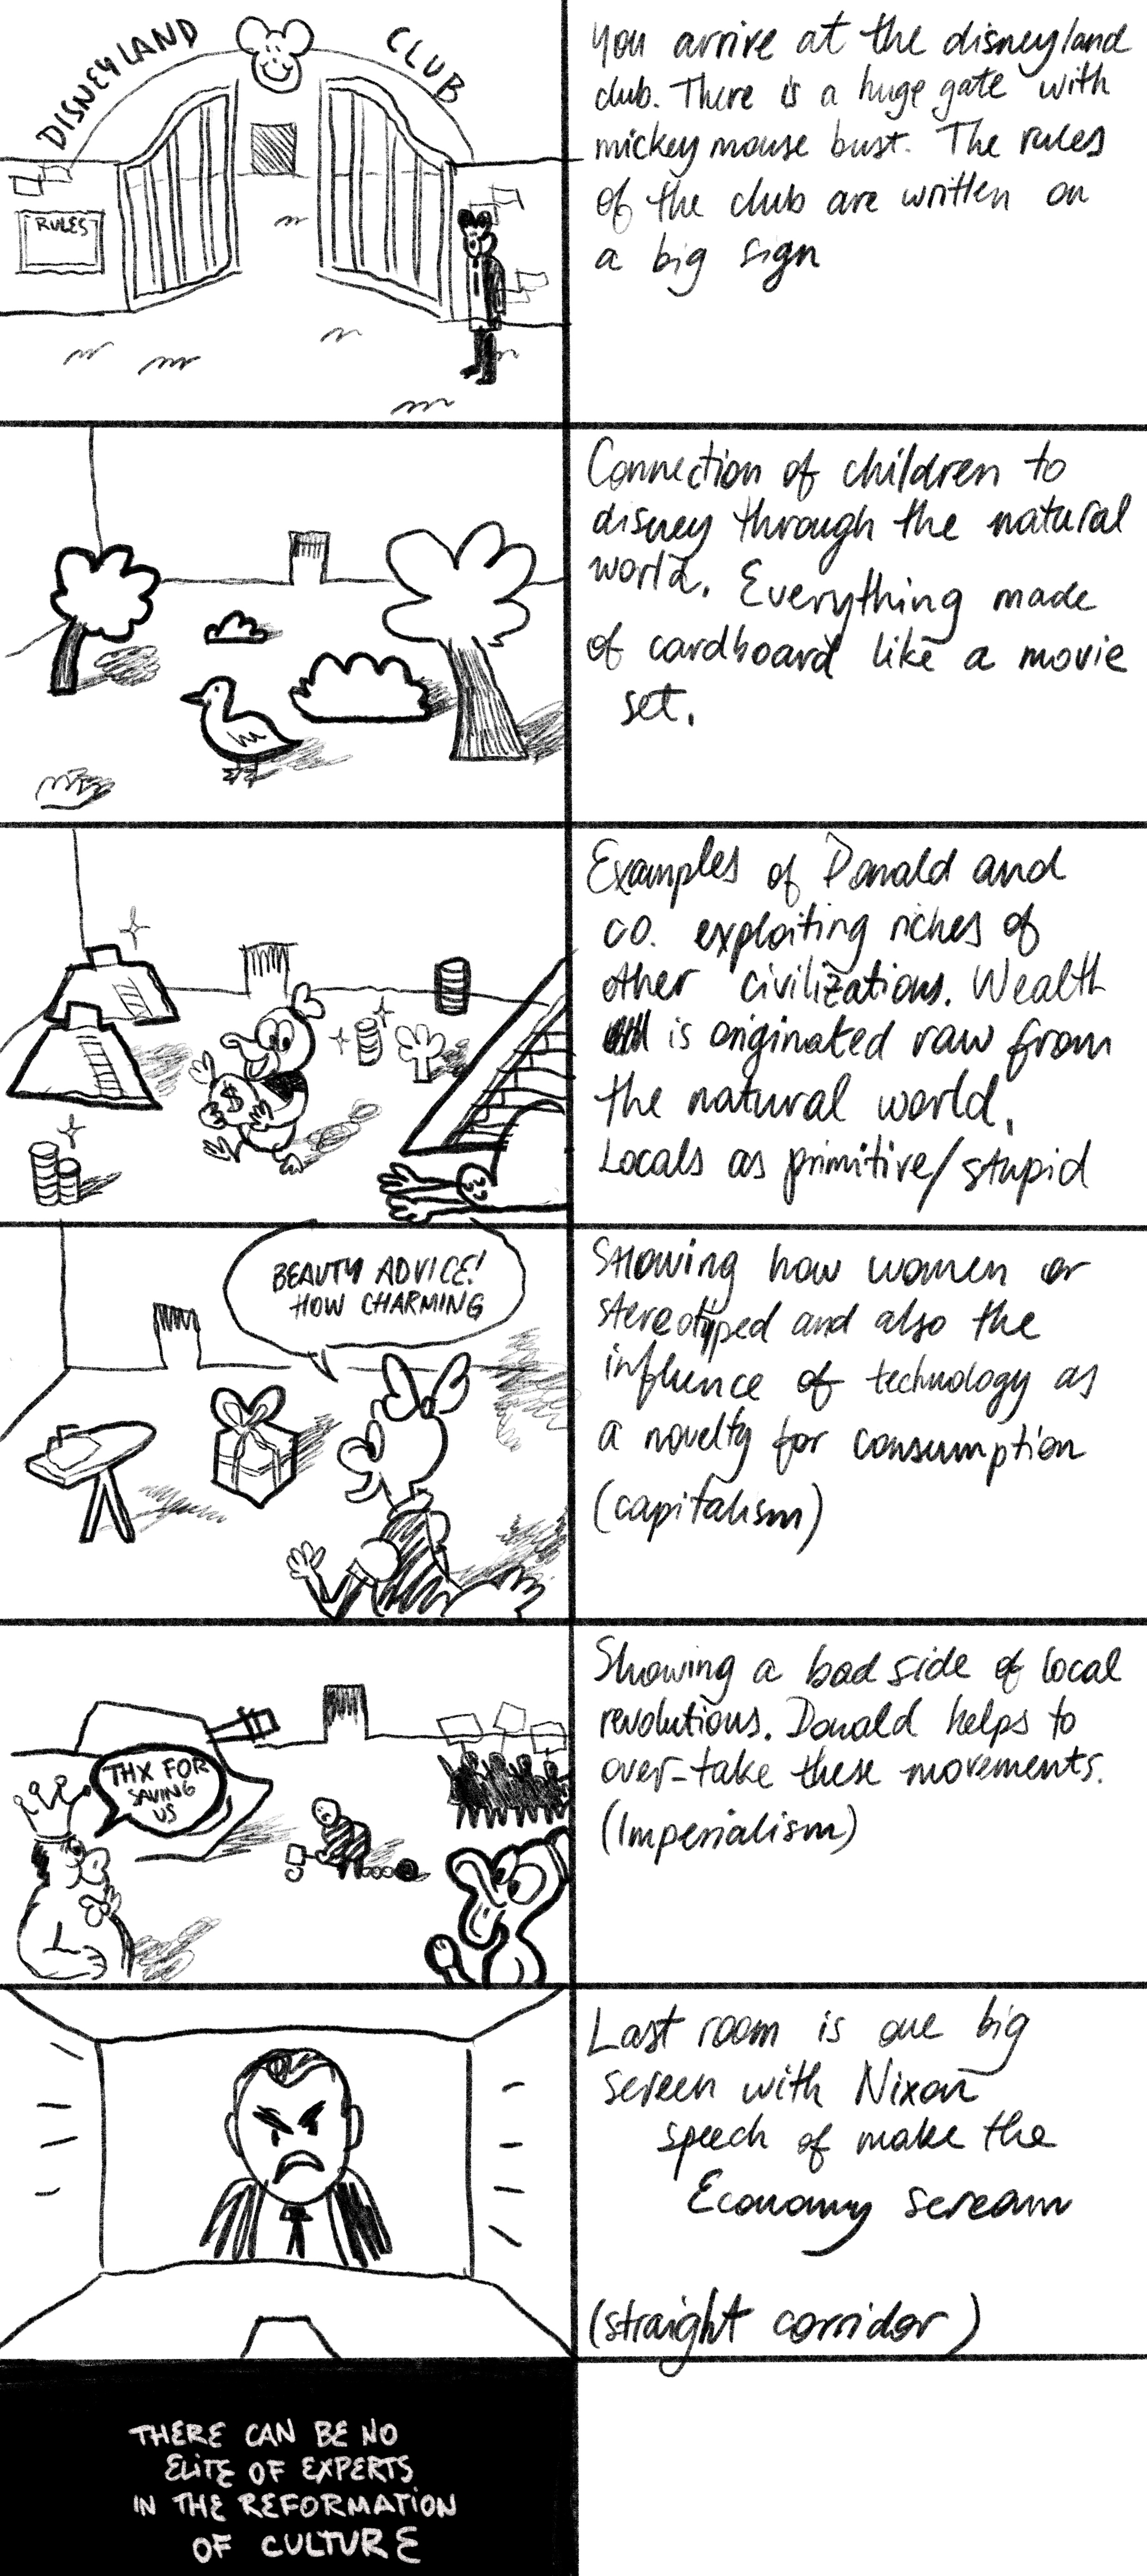 DISNEYLAND CLUB
RULES
You arrive at the disneyland
club. There is a huge gate with
mickey mouse bust. The rules
of the club are written on
a big sign
Connection of children to
disney through the natural
world. Everything made
of cardboard like a movie
set.
Examples of Donald and
co. exploiting riches of
other civilizations. Wealth
is originated raw from
the natural world.
Locals as primitive/stupid
$
BEAUTY ADVICE!
HOW CHARMING
Showing how women or
stereotyped and also the
influence of technology as
a novelty for consumption
(capitalism)
THX FOR
SAVING
US
Showing a bad side of local
revolutions. Donald helps to
over-take these movements.
(Imperialism)
Last room is one big
screen with Nixon
speech of make the
Economy scream
(straight corridor)
THERE CAN BE NO
ELITE OF EXPERTS
IN THE REFORMATION
OF CULTURE